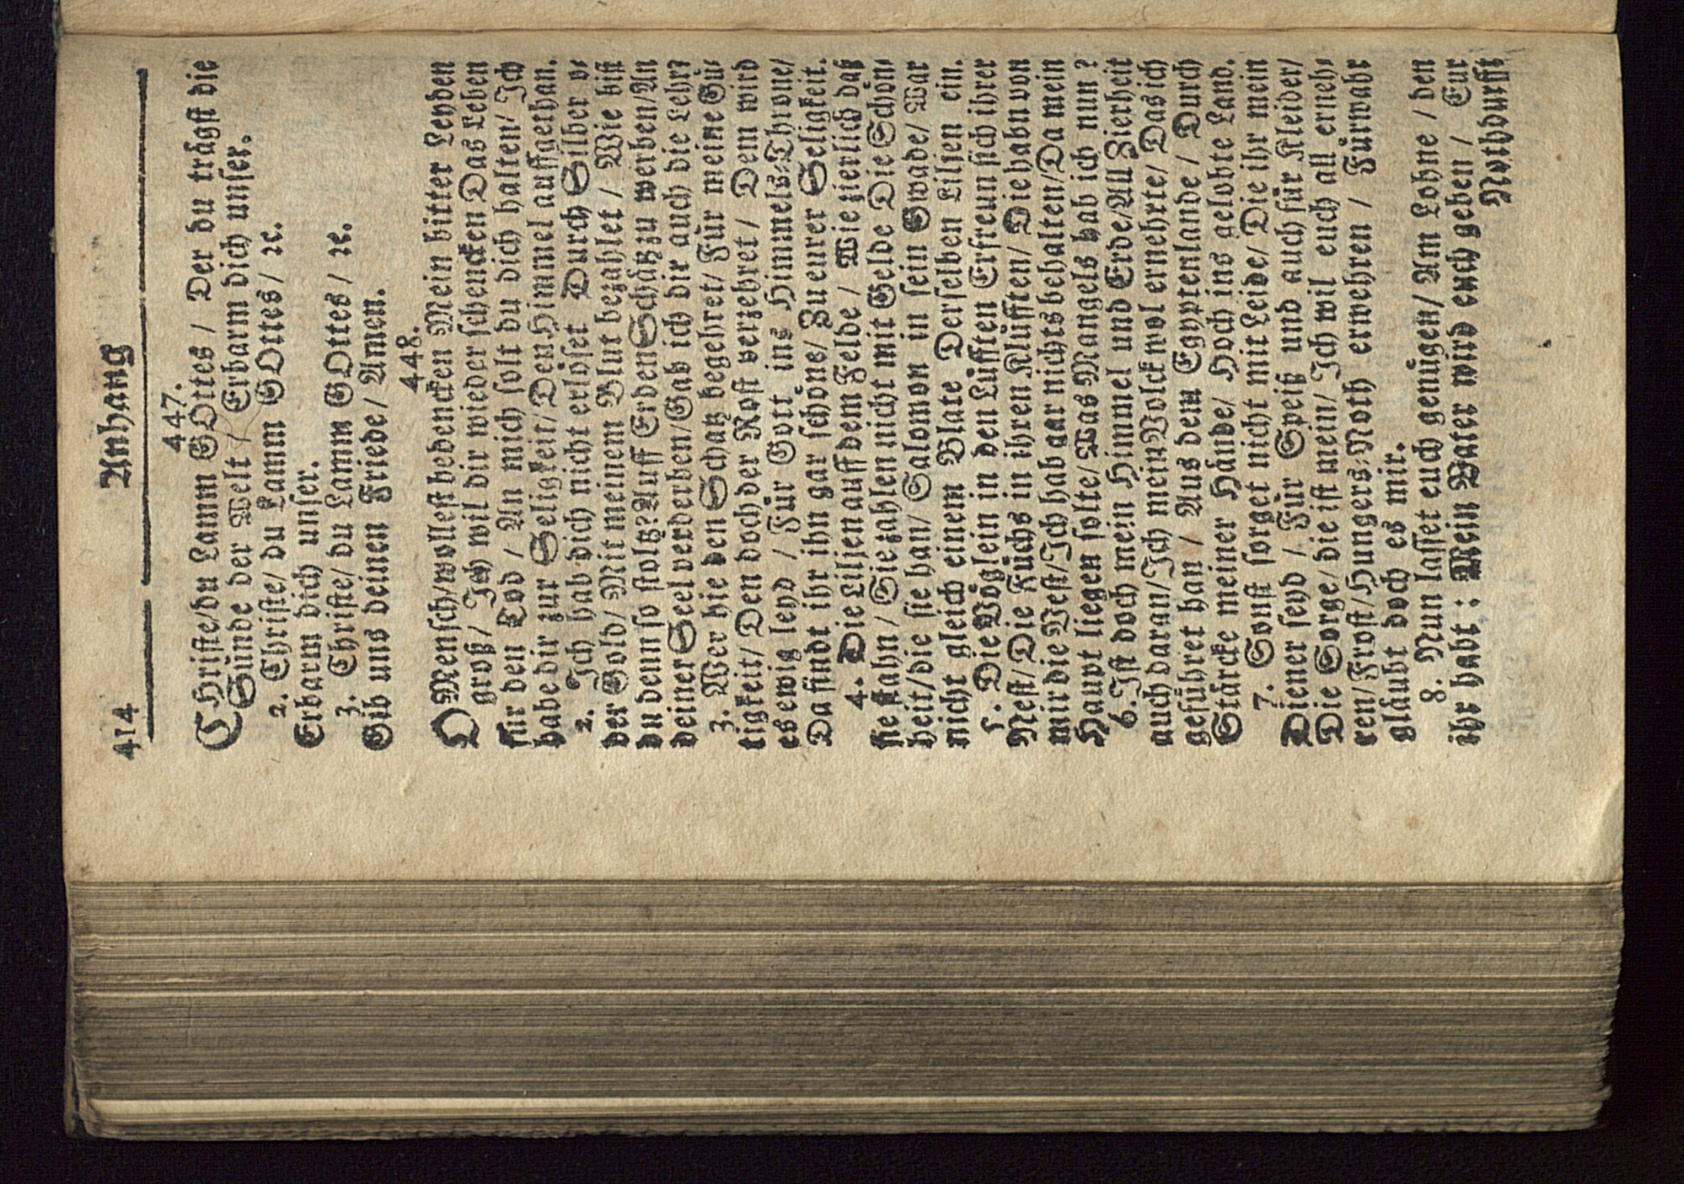 414 Anhang
447.
CHriste/du Lamm GOttes / Der du trägst die
Sünde der Welt / Erbarm dich unser.
2. Christe/ du Lamm GOttes/ ꝛc.
Erbarm dich unser.
3. Christe/ du Lamm GOttes / ꝛc.
Gib uns deinen Friede/ Amen.
448.
O Mensch/wollest bedencken Mein bitter Leyden
groß/ Ich wil dir wieder schencken Das Leben
für den Tod / An mich solt du dich halten/ Ich
habe dir zur Seligkeit/ Den Himmel auffgethan.
2. Ich hab dich nicht erlöset Durch Silber o-
der Gold/ Mit meinem Blut bezahlet / Wie bist
du denn so stoltz? Auff Erden Schätz zu werben/An
deiner Seel verderben/Gab ich dir auch die Lehr?
3. Wer hie den Schatz begehret/ Für meine Gü-
tigkeit/ Den doch der Rost verzehret / Dem wird
es ewig leyd / Für Gott ins Himmels-Throne/
Da findt ihr ihn gar schone/ Zu eurer Seligkeit.
4. Die Liljen auff dem Felde / Wie zierlich daß
sie stahn / Sie zahlen nicht mit Gelde Die Schön-
heit/die sie han/ Salomon in sein Gwade/ War
nicht gleich einem Blate Derselben Liljen ein.
5. Die Vöglein in den Lüfften Erfreun sich ihrer
Nest/ Die Füchs in ihren Klüfften/ Die habn von
mir die Vest/Ich hab gar nichts behalten/Da mein
Haupt liegen solte/ Was Mangels hab ich nun?
6. Ist doch mein Himmel und Erde/All Zierheit
auch daran/Ich mein Volck wol ernehrte/ Das ich
geführet han / Aus dem Egyptenlande / Durch
Stärcke meiner Hände/ Hoch ins gelobte Land.
7. Sonst sorget nicht mit Leide/ Die ihr mein
Diener seyd / Für Speiß und auch für Kleider/
Die Sorge/ die ist mein/ Ich wil euch all erneh-
ren/Frost/Hungers-Noth erwehren / Fürwahr
gläubt doch es mir.
8. Nun lasset euch genügen/ Am Lohne / den
ihr habt: Mein Vater wird euch geben / Eur
Nothdurfft